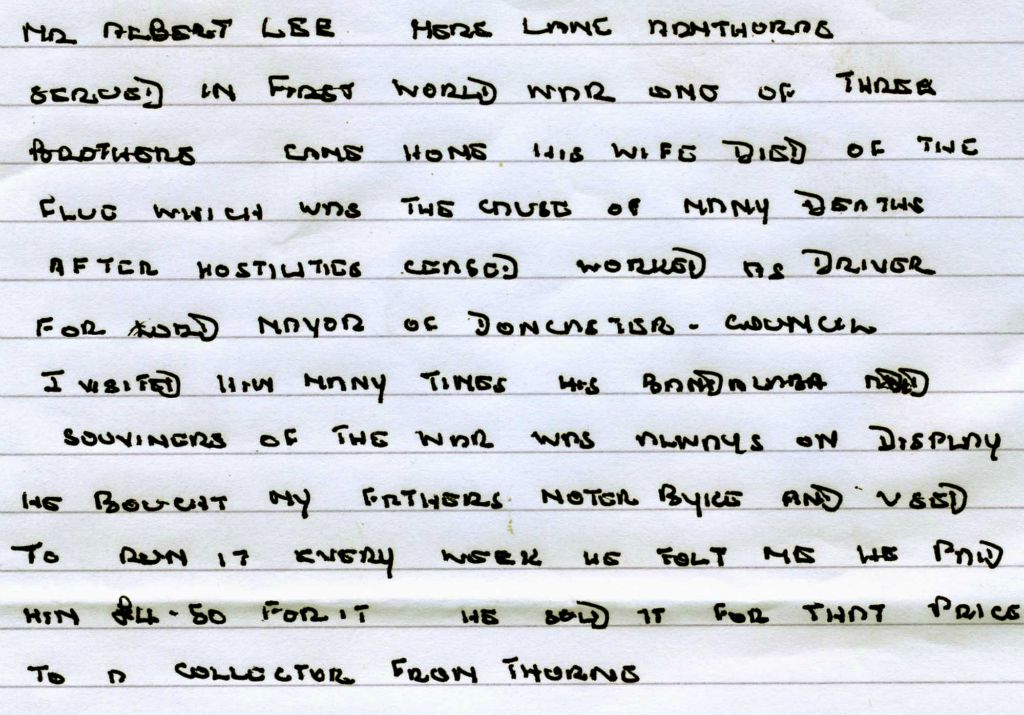 MR ALBERT LEE MERE LANE ARMTHORPE
SERVED IN FIRST WORLD WAR ONE OF THREE
BROTHERS CAME HOME HIS WIFE DIED OF THE
FLUE WHICH WAS THE CAUSE OF MANY DEATHS
AFTER HOSTILITIES CEASED WORKED AS DRIVER
FOR LORD MAYOR OF DONCASTER - COUNCIL
I VISITED HIM MANY TIMES HIS AND
SOUVINERS OF THE WAR WAS ALWAYS ON DISPLAY
HE BOUGHT MY FATHERS MOTER BYKE AND USED
TO RUN IT EVERY WEEK HE TOLT ME HE PAID
HIM £4-50 FOR IT HE SOLD IT FOR THAT PRICE
TO A COLLECTOR FROM THORNE